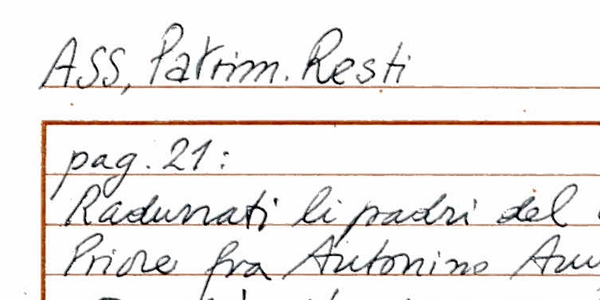 ASS, Patrim. Resti
pag. 21:
Radunati li padri del
Priore fra Antonino